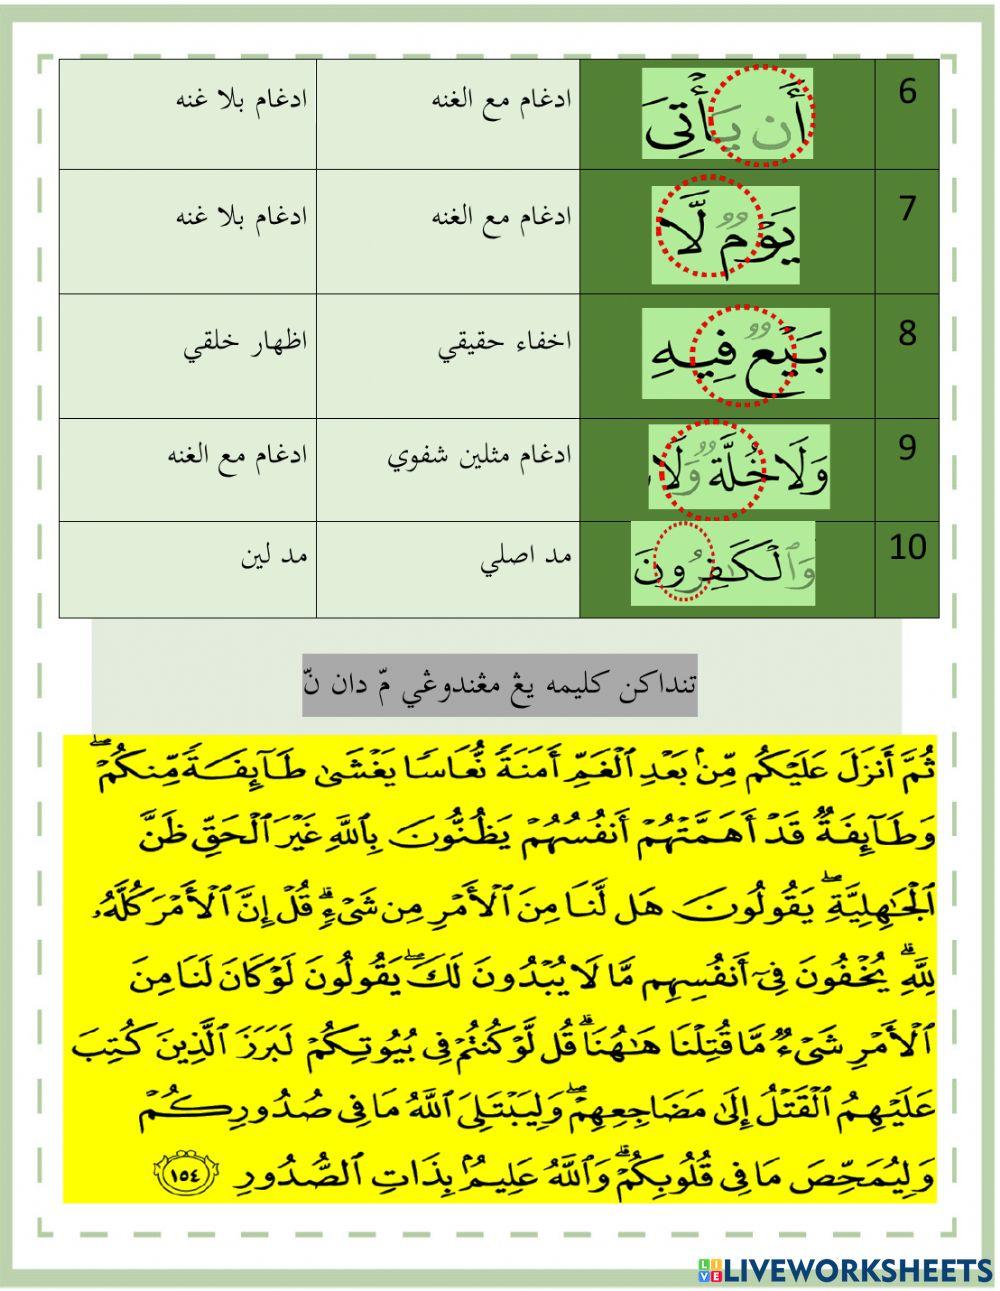 6 أَن يَأْتِىَ ادغام مع الغنه ادغام بلا غنه
7 يَوْمٌ لَّا ادغام مع الغنه ادغام بلا غنه
8 بَيْعٌ فِيهِ اخفاء حقيقي اظهار خلقي
9 وَلَا خُلَّةٌ وَلَا ادغام مثلين شفوي ادغام مع الغنه
10 وَٱلْكَـٰفِرُونَ مد اصلي مد لين
تنداكن كليمه يڠ مڠندوڠي مّ دان نّ
ثُمَّ أَنزَلَ عَلَيْكُم مِّنۢ بَعْدِ ٱلْغَمِّ أَمَنَةً نُّعَاسًا يَغْشَىٰ طَآئِفَةً مِّنكُمْ ۖ
وَطَآئِفَةٌ قَدْ أَهَمَّتْهُمْ أَنفُسُهُمْ يَظُنُّونَ بِٱللَّهِ غَيْرَ ٱلْحَقِّ ظَنَّ
ٱلْجَـٰهِلِيَّةِ ۖ يَقُولُونَ هَل لَّنَا مِنَ ٱلْأَمْرِ مِن شَىْءٍ ۗ قُلْ إِنَّ ٱلْأَمْرَ كُلَّهُۥ
لِلَّهِ ۗ يُخْفُونَ فِىٓ أَنفُسِهِم مَّا لَا يُبْدُونَ لَكَ ۖ يَقُولُونَ لَوْ كَانَ لَنَا مِنَ
ٱلْأَمْرِ شَىْءٌ مَّا قُتِلْنَا هَـٰهُنَا ۗ قُل لَّوْ كُنتُمْ فِى بُيُوتِكُمْ لَبَرَزَ ٱلَّذِينَ كُتِبَ
عَلَيْهِمُ ٱلْقَتْلُ إِلَىٰ مَضَاجِعِهِمْ ۖ وَلِيَبْتَلِىَ ٱللَّهُ مَا فِى صُدُورِكُمْ
وَلِيُمَحِّصَ مَا فِى قُلُوبِكُمْ ۗ وَٱللَّهُ عَلِيمٌۢ بِذَاتِ ٱلصُّدُورِ ١٥٤
LIVE LIVEWORKSHEETS